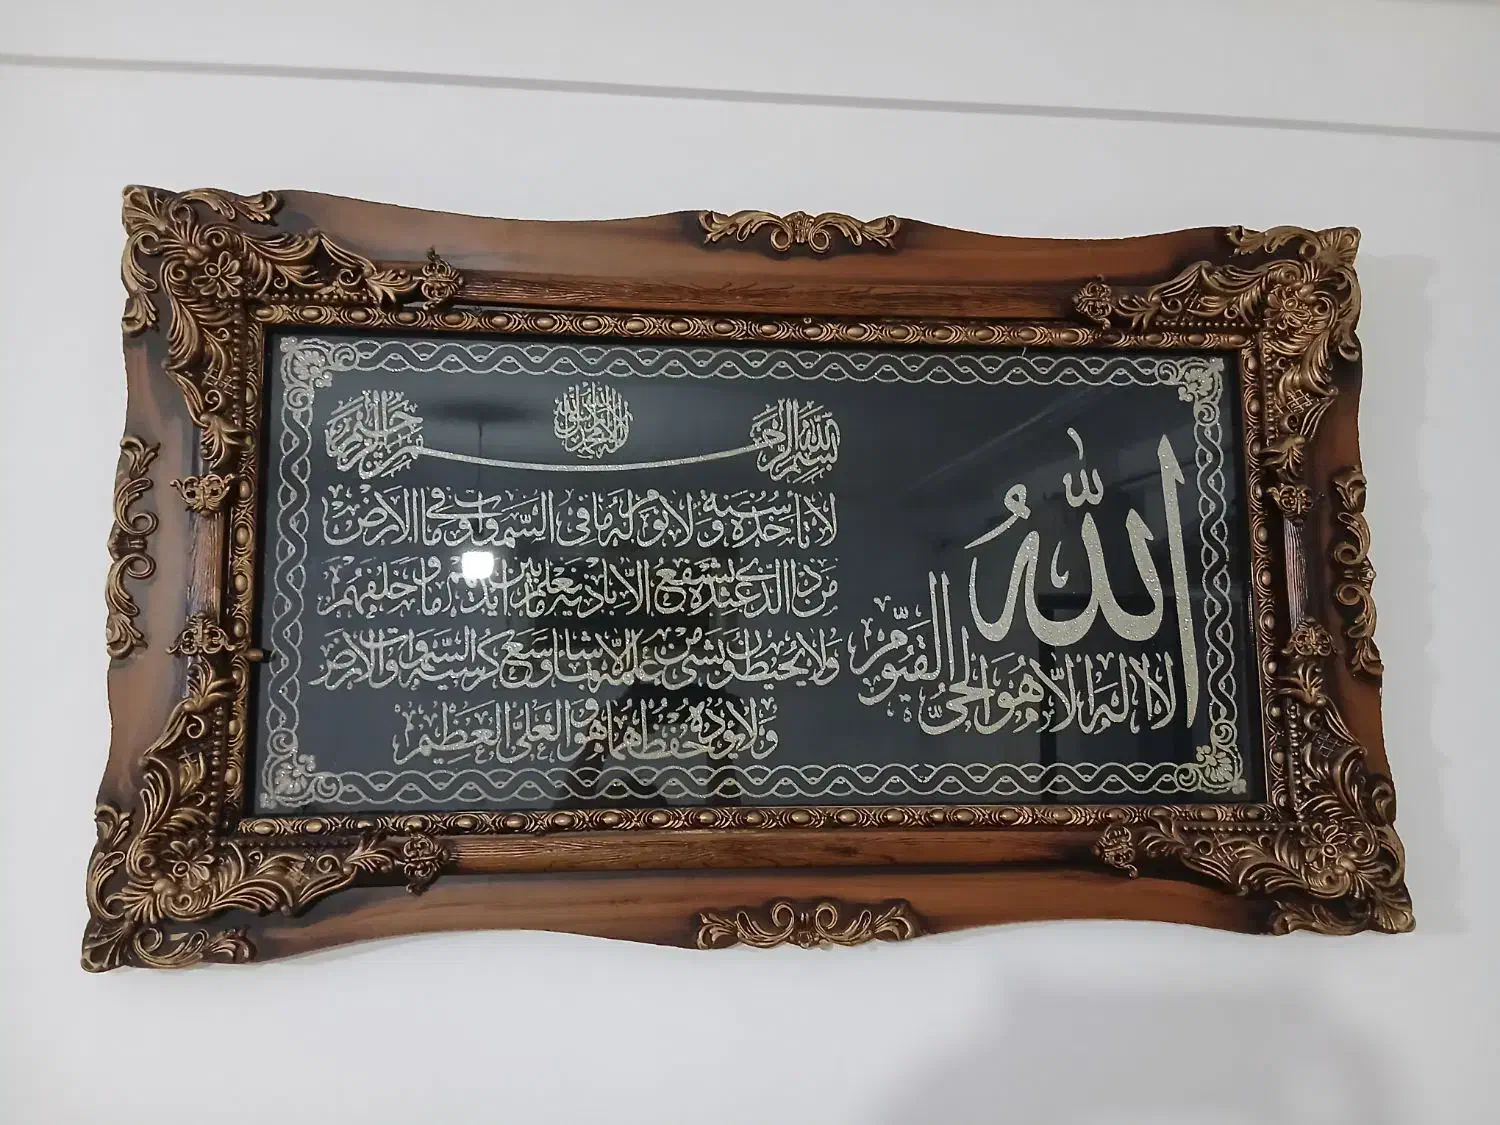 بسم الله الرحمن الرحيم
لا اله الا الله محمد رسول الله
الله
لا اله الا هو الحي القيوم
لا تأخذه سنة ولا نوم له ما في السموات وما في الارض
من ذا الذي يشفع عنده الا باذنه يعلم ما بين ايديهم وما خلفهم
ولا يحيطون بشئ من علمه الا بما شاء وسع كرسيه السموات والارض
ولا يؤده حفظهما وهو العلي العظيم